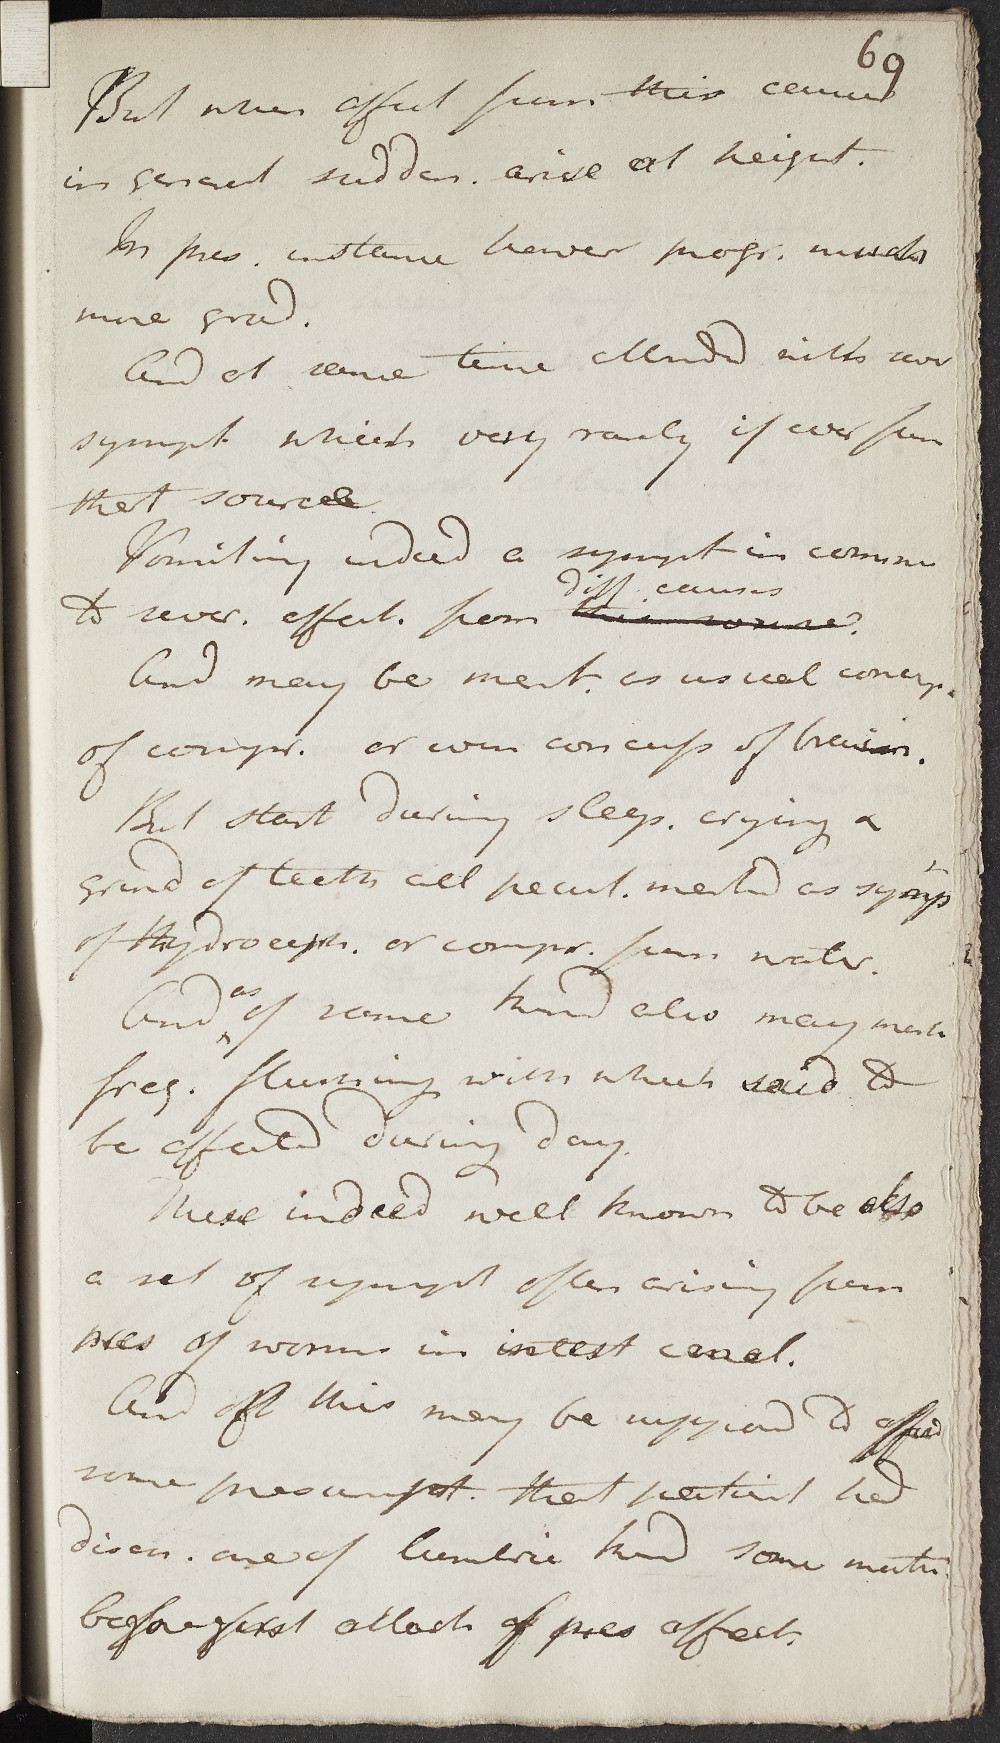 69
But when affect from this cause
in general sudden. arise at height.
In pres. instance howev progr. much
more grad.
And at same time attended with sever
sympt which very rarely if ever from
that source.
Vomiting indeed a sympt in common
diff. causes
to sever. affect. from this source.
And may be ment. as usual concq.
of compr. or even concuss of brain.
But start during sleep. crying &
grind of teeth all pecul. mentd as symp
of Hydroceph. or compr. from water.
And as of same kind also may ment
freq. flushing with which said to
be affected during day.
These indeed well known to be also
a set of sympt often arising from
pres of worms in intest canal.
And aft this may be supposd to afford
some presumpt. that patient had
disch. one of lumbric kind some
before first attack of pres affect.